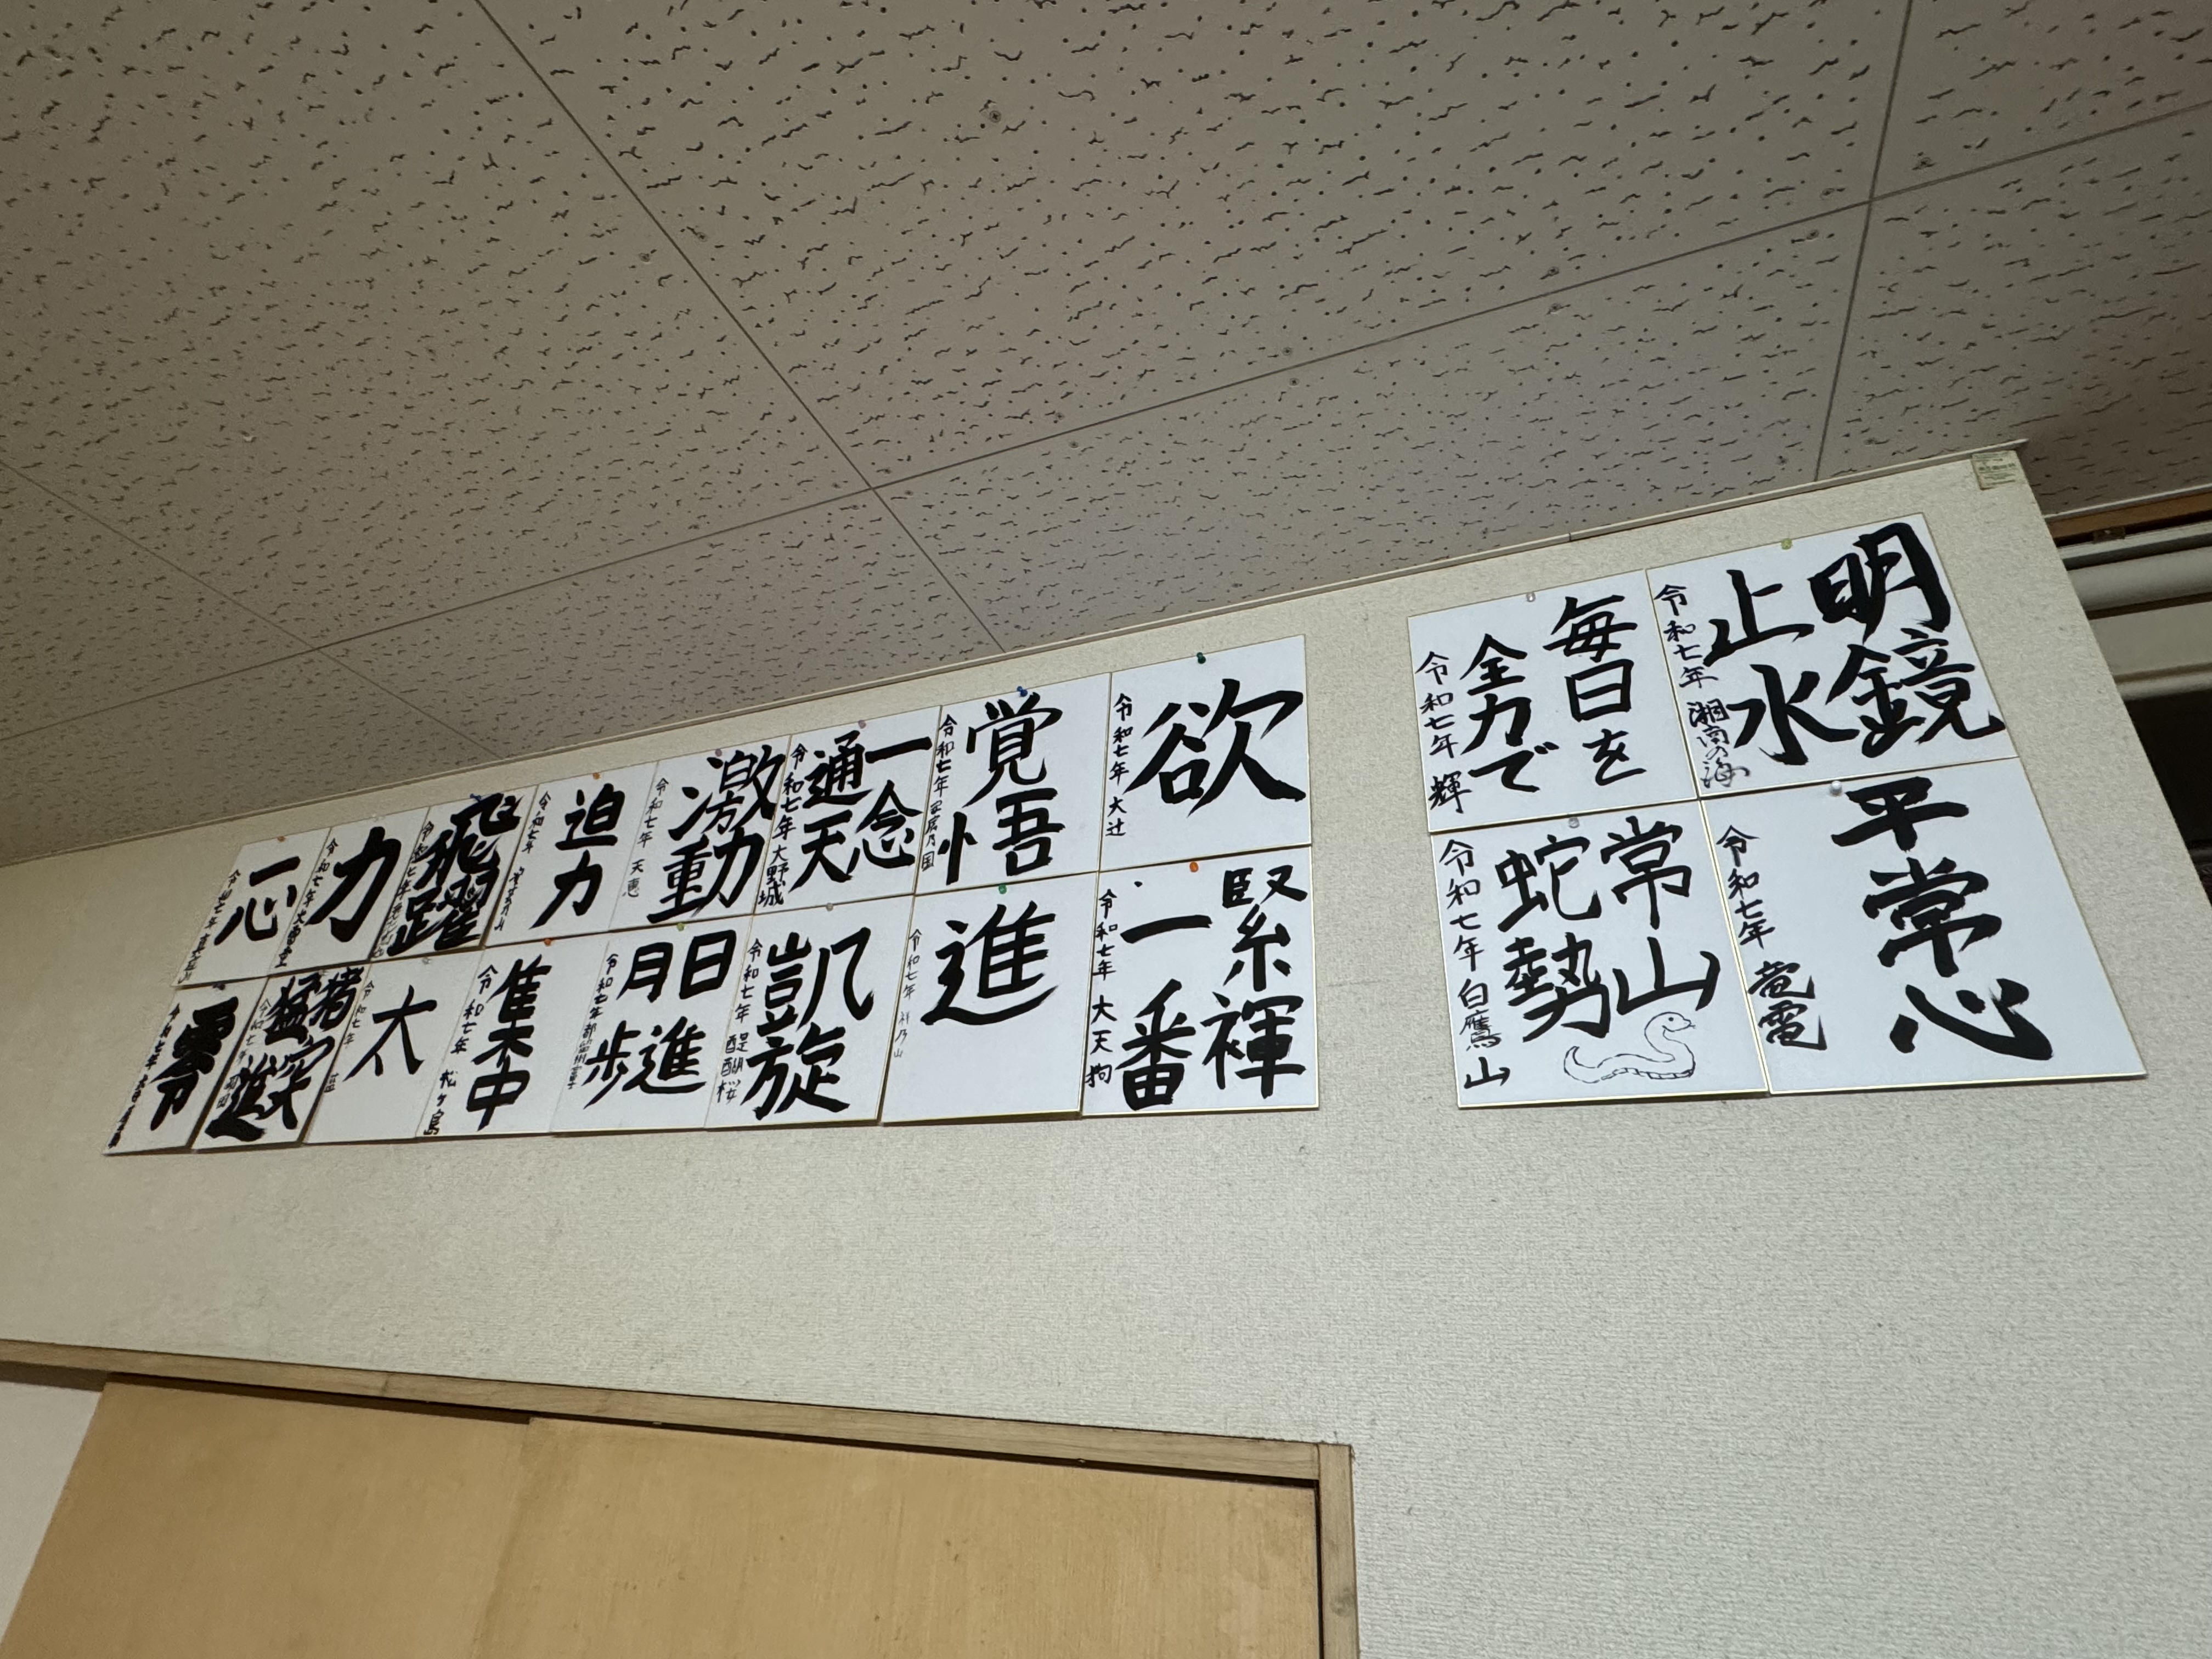 明鏡
止水
令和七年 湘南乃海
毎日を
全力で
令和七年 輝
平常心
令和七年 竜電
常山
蛇勢
令和七年 白鷹山
欲
令和七年 大辻
覚悟
令和七年 安房乃国
一念
通天
令和七年 大野城
激動
令和七年 天恵
迫力
令和七年
飛躍
令和七年
力
令和七年
一心
令和七年
緊褌
一番
令和七年 大天狗
進
令和七年
凱旋
令和七年 醍醐桜
日進
月歩
令和七年
集中
令和七年 松ヶ島
太
令和七年
猪突
猛進
令和七年